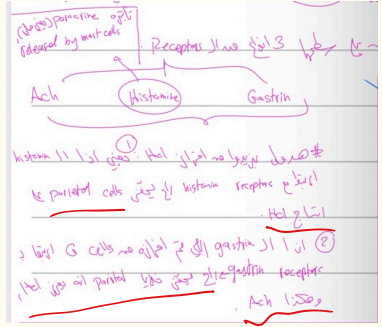 تأثيره paracrine
released by mast cells
3 انواع من ال Receptors :
Ach Histamine Gastrin
# هدول بزيدوا من افراز Hcl . يعني اذا ال histamine ①
ارتبط مع histamin receptors راح يحفز parietal cells
انتاج Hcl .
② اذا ال gastrin الي تم افرازه من G cells ارتبط
gastrin receptors راح يحفز خلايا parietal انه تفرز Hcl ,
وهكذا Ach .